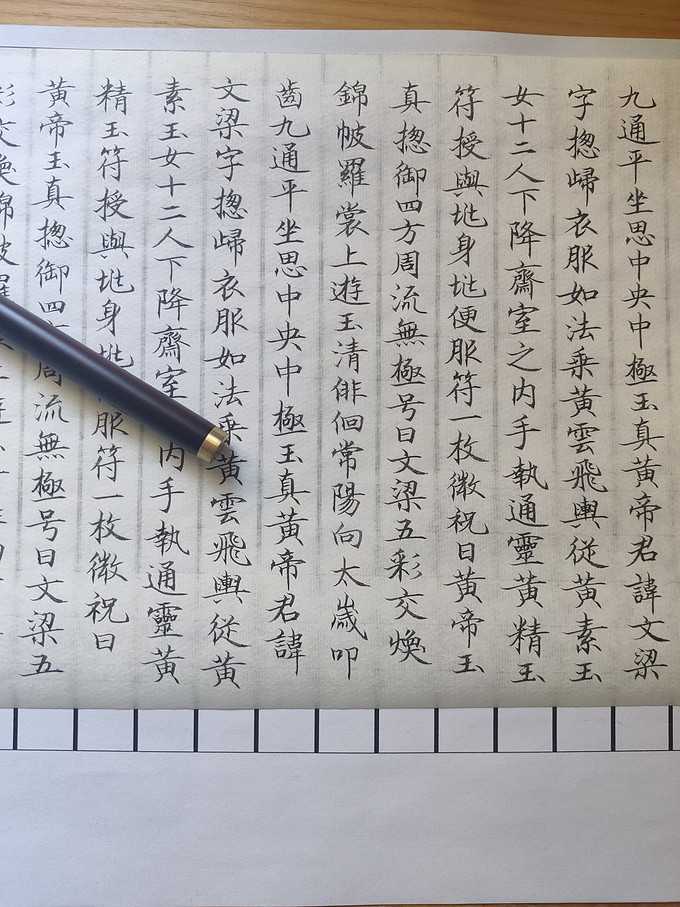 九通平坐思中央中極玉真黃帝君諱文梁
字揔歸衣服如法乘黃雲飛輿從黃素玉
女十二人下降齋室之内手執通靈黃精玉
符授與兆身兆便服符一枚微祝曰黃帝玉
真揔御四方周流無極号曰文梁五彩交煥
錦帔羅裳上遊玉清俳佪常陽向太歲叩
齒九通平坐思中央中極玉真黃帝君諱
文梁字揔歸衣服如法乘黃雲飛輿從黃
素玉女十二人下降齋室内手執通靈黃
精玉符授與兆身兆服符一枚微祝曰
黃帝玉真揔御四周流無極号曰文梁五
彩交煥錦帔羅